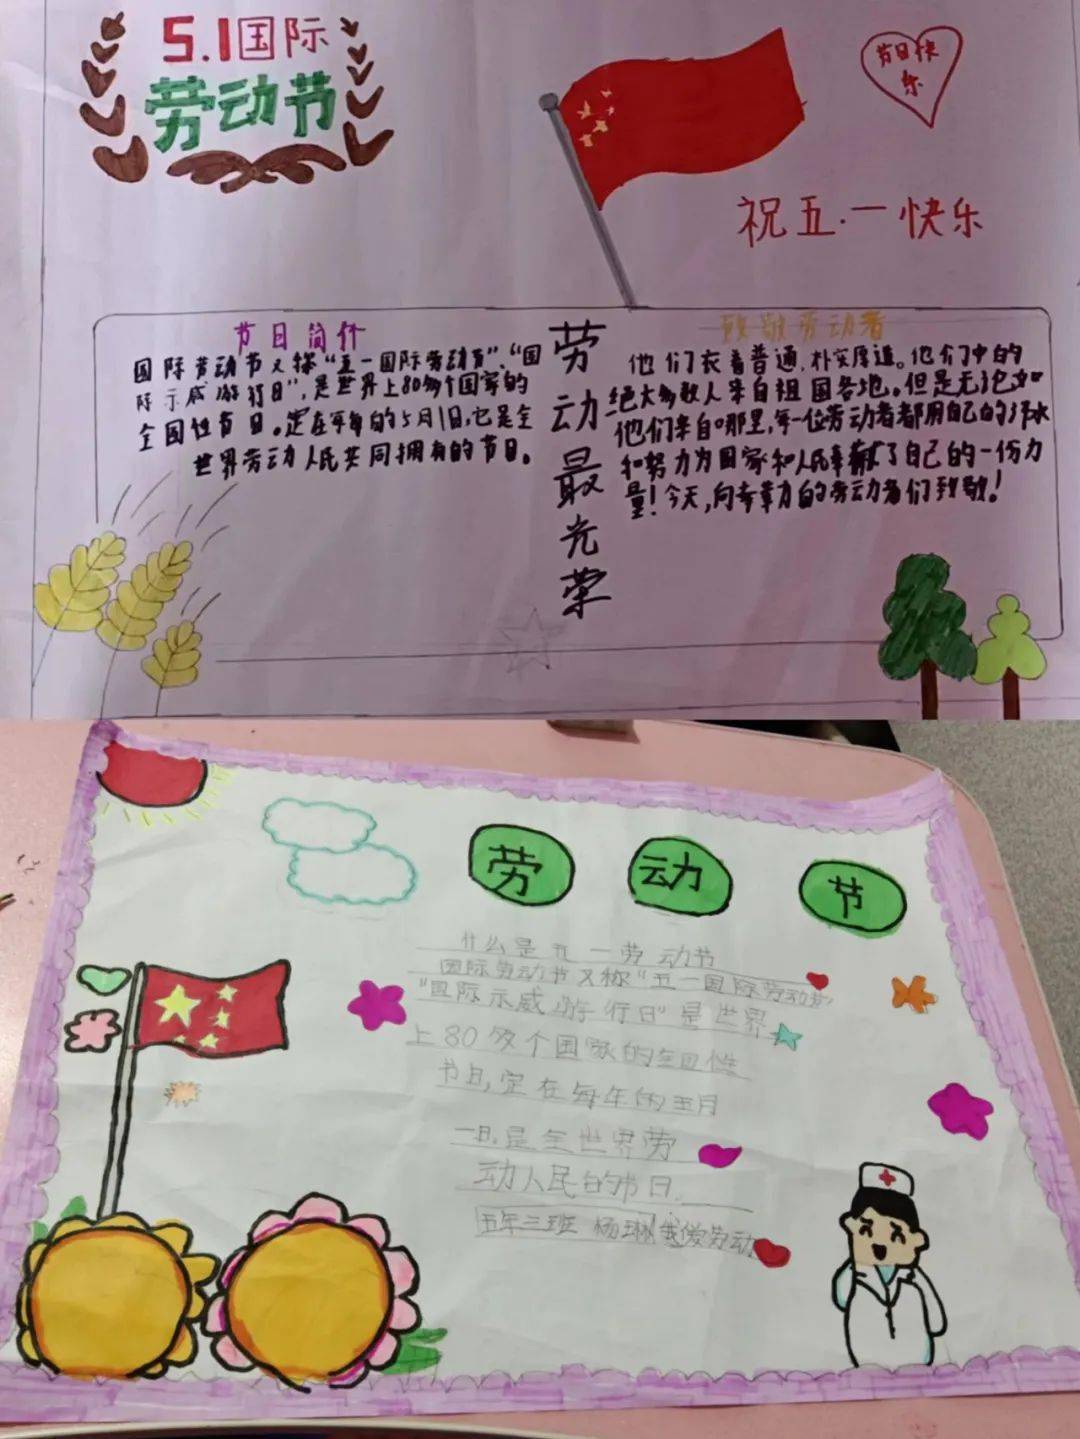 5.1国际
劳动节
节日快
乐
祝五·一快乐
节日简介
国际劳动节又称“五一国际劳动节”、“国
际示威游行日”,是世界上80多个国家的
全国性节日。定在每年的5月1日,它是全
世界劳动人民共同拥有的节日。
劳动最光荣
致敬劳动者
他们衣着普通,朴实厚道。他们中的
绝大多数人来自祖国各地。但是无论如
他们来自哪里,每一位劳动者者都用自己的汗水
和努力为国家和人民奉献了自己的一份力
量!今天,向幸苦力的劳动者们致敬!
劳动节
什么是五一劳动节
国际劳动节又称“五一国际劳动节”
“国际示威游行日”是世界
上80多个国家的全国性
节日,定在每年的五月
一日,是全世界劳
动人民的节日.
五年三班 杨琳 我爱劳动